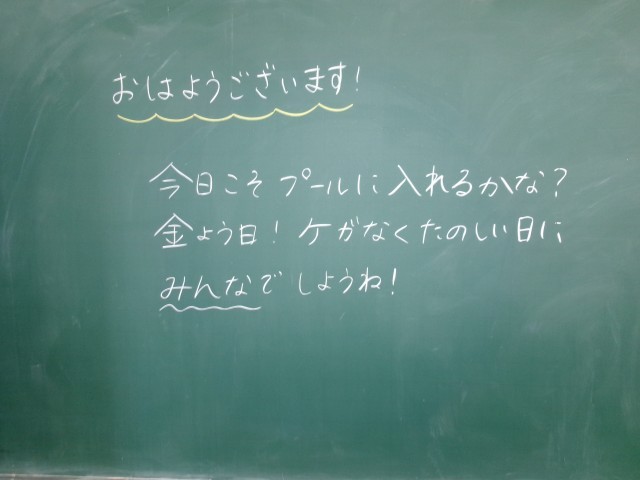 おはようございます!
今日こそプールに入れるかな?
金よう日!ケガなくたのしい日に
みんなでしようね!